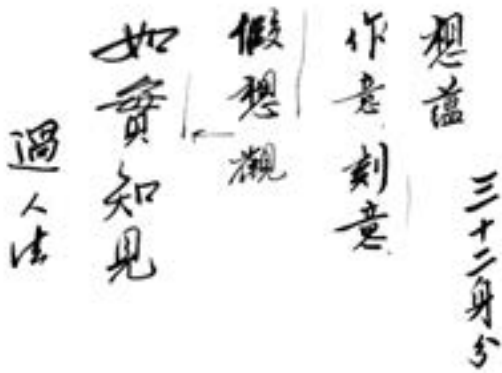 想蘊
三十二身分
作意 刻意
假想觀
如實知見
過人法